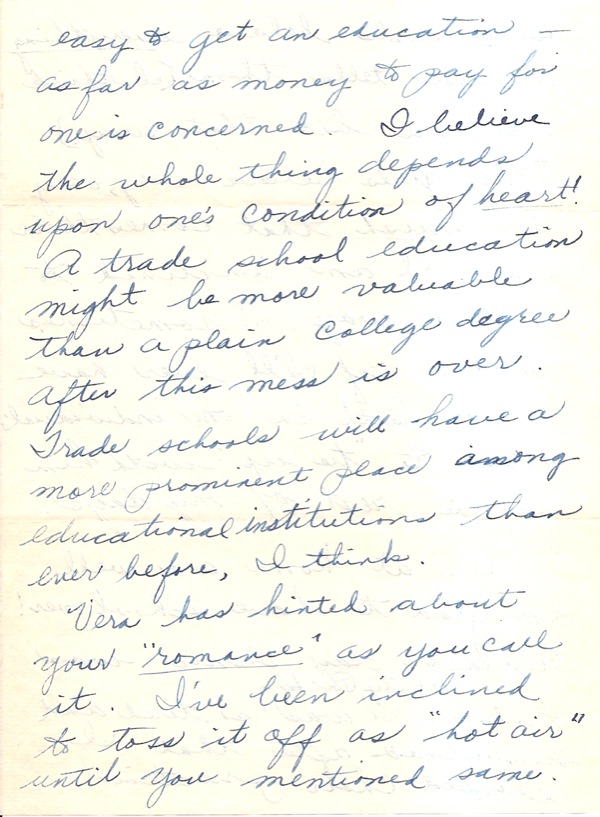 easy to get an education —
as far as money to pay for
one is concerned. I believe
the whole thing depends
upon one's condition of heart!
A trade school education
might be more valuable
than a plain college degree
after this mess is over.
Trade schools will have a
more prominent place among
educational institutions than
ever before, I think.
Vera has hinted about
your "romance" as you call
it. I've been inclined
to toss it off as "hot air"
until you mentioned same.